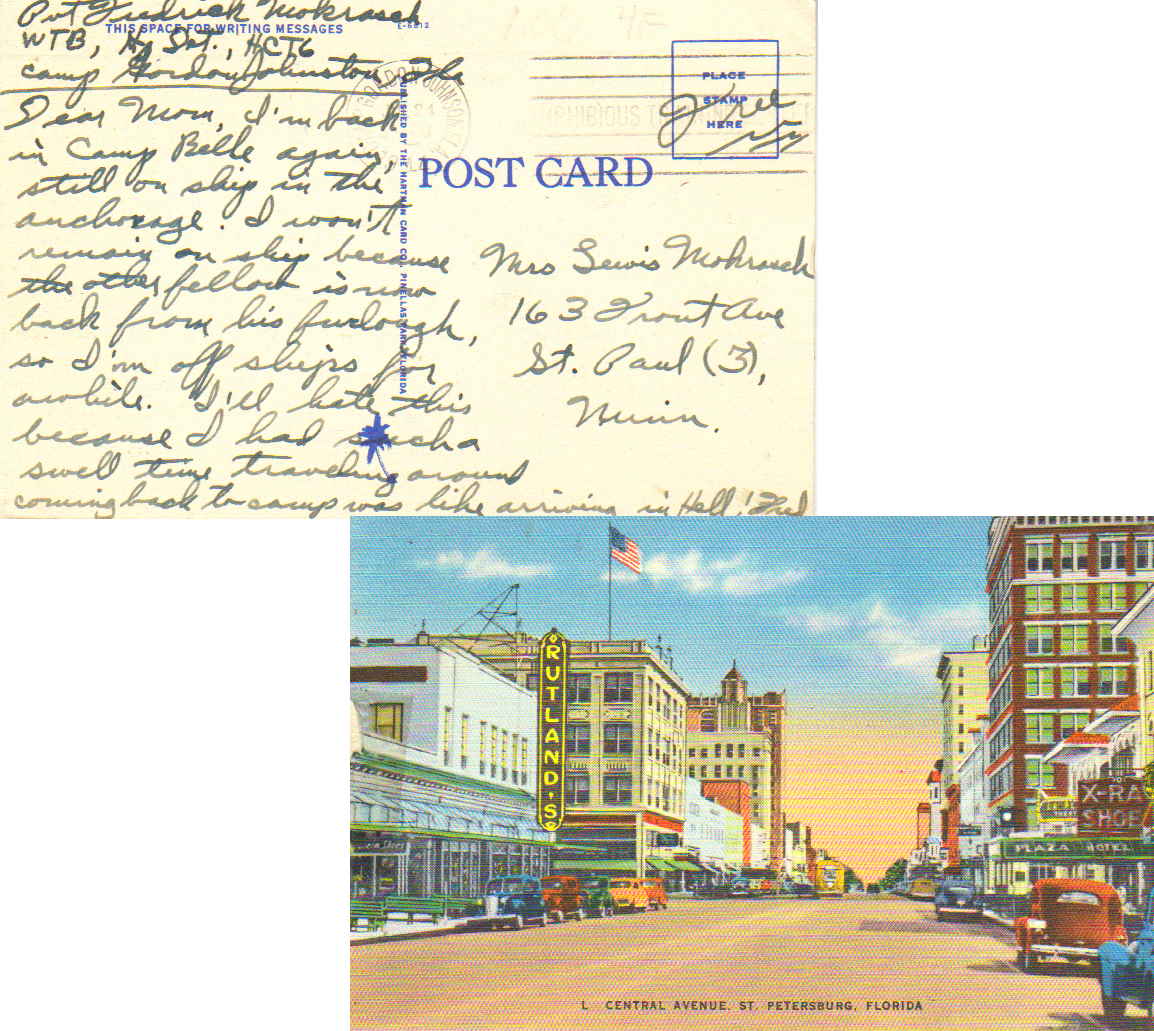 Pvt Fredrick Mokrasch
THIS SPACE FOR WRITING MESSAGES
E-6812
WTB, Hq Det., HCT6
Camp Gordon Johnston, Fla
Dear Mom, I'm back
in Camp Belle again,
still on ship in the
anchorage. I won't
remain on ship because
the other fellow is now
back from his furlough,
so I'm off ships for
awhile. I'll hate this
because I had such a
swell time traveling around
coming back to camp was like arriving in Hell! Fred
PUBLISHED BY THE HARTMAN CARD CO., PINELLAS PARK, FLORIDA
GORDON JOHNSTON
PHIBIOUS
PLACE
STAMP
HERE
Free
POST CARD
Mrs Lewis Mokrasch
163 Front Ave
St. Paul (3),
Minn.
RUTLAND'S
X-RA
SHOE
PLAZA HOTEL
L CENTRAL AVENUE. ST. PETERSBURG, FLORIDA